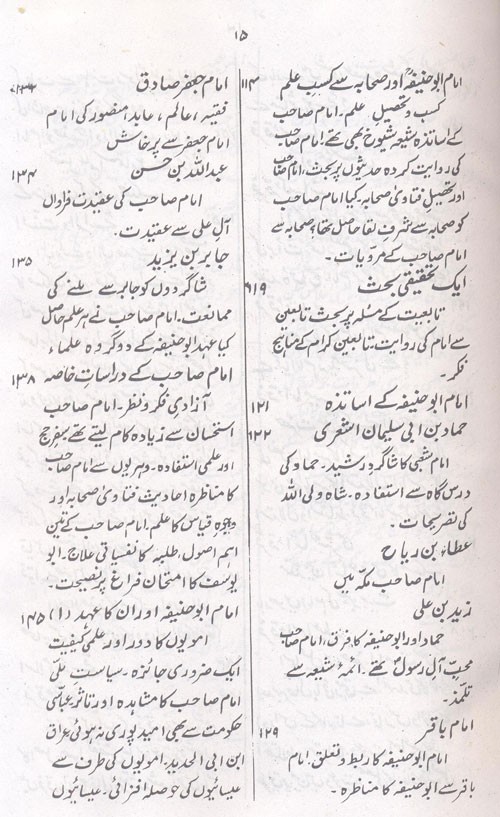 ۱۵
امام ابو حنیفہؒ اور صحابہ سے کسبِ علم ۱۱۴
کسب و تحصیلِ علم۔ امام صاحب
کے اساتذہ شیعہ شیوخ بھی تھے امام صاحب
کی روایت کردہ حدیثوں پر بحث، امام صاحب
اور تحصیلِ فتاویٰ صحابہ۔ کیا امام صاحب
کو صحابہ سے شرفِ لقا حاصل تھا؟ صحابہ سے
امام صاحب کے مرویات۔
ایک تحقیقی بحث ۶۱۹
تابعیت کے مسئلہ پر بحث تابعین
سے امام کی روایت، تابعین کرام کے مناہج
فکر۔
امام ابو حنیفہ کے اساتذہ ۱۲۱
حماد بن ابی سلیمان اشعری ۶۲۲
امام شعبی کا شاگردِ رشید۔ حماد کی
درس گاہ سے استفادہ۔ شاہ ولی اللہ
کی تصریحات۔
عطاء بن رباح
امام صاحب مکہ میں
زید بن علی
حماد اور ابو حنیفہ کا فرق، امام صاحب
محبِ آلِ رسولؐ تھے۔ ائمۂ شیعہ سے
تلمذ۔
امام باقر ۱۲۹
امام ابو حنیفہ کا ربط و تعلق امام
باقر سے ابو حنیفہ کا مناظرہ۔
امام جعفر صادق
فقیہ، عالم، عابد منصور کی امام
امام جعفر سے پرخاش
عبد اللہ بن حسن ۱۳۴
امام صاحب کی عقیدت فراواں
آلِ علی سے عقیدت۔
جابر بن یزید ۱۳۵
شاگردوں کو جابر سے ملنے کی
ممانعت۔ امام صاحب نے ہر علم حاصل
کیا عہد ابو حنیفہ کے دو گروہ علماء
امام صاحب کے دراساتِ خاصہ ۱۳۸
آزادیِ فکر و نظر۔ امام صاحب
استحسان سے زیادہ کام لیتے تھے سفرِ حج
اور علمی استفادہ۔ دہریوں سے امام صاحب
کا مناظرہ احادیث فتاویٰ صحابہ اور
وجوہِ قیاس کا علم۔ امام صاحب کے تین
اہم اصول، طلبہ کا نفسیاتی علاج۔ ابو
یوسف کا امتحان فراغ پر نصیحت۔
امام ابو حنیفہ اور ان کا عہد (۱) ۱۴۵
امویوں کا دور اور علمی کیفیت
ایک ضروری جائزہ۔ سیاست ملی
امام صاحب کا مشاہدہ اور تاثر عباسی
حکومت سے بھی امید پوری نہ ہوئی عراق
ابن ابی الحدید۔ امویوں کی طرف سے
عیسائیوں کی حوصلہ افزائی۔ عیسائیوں